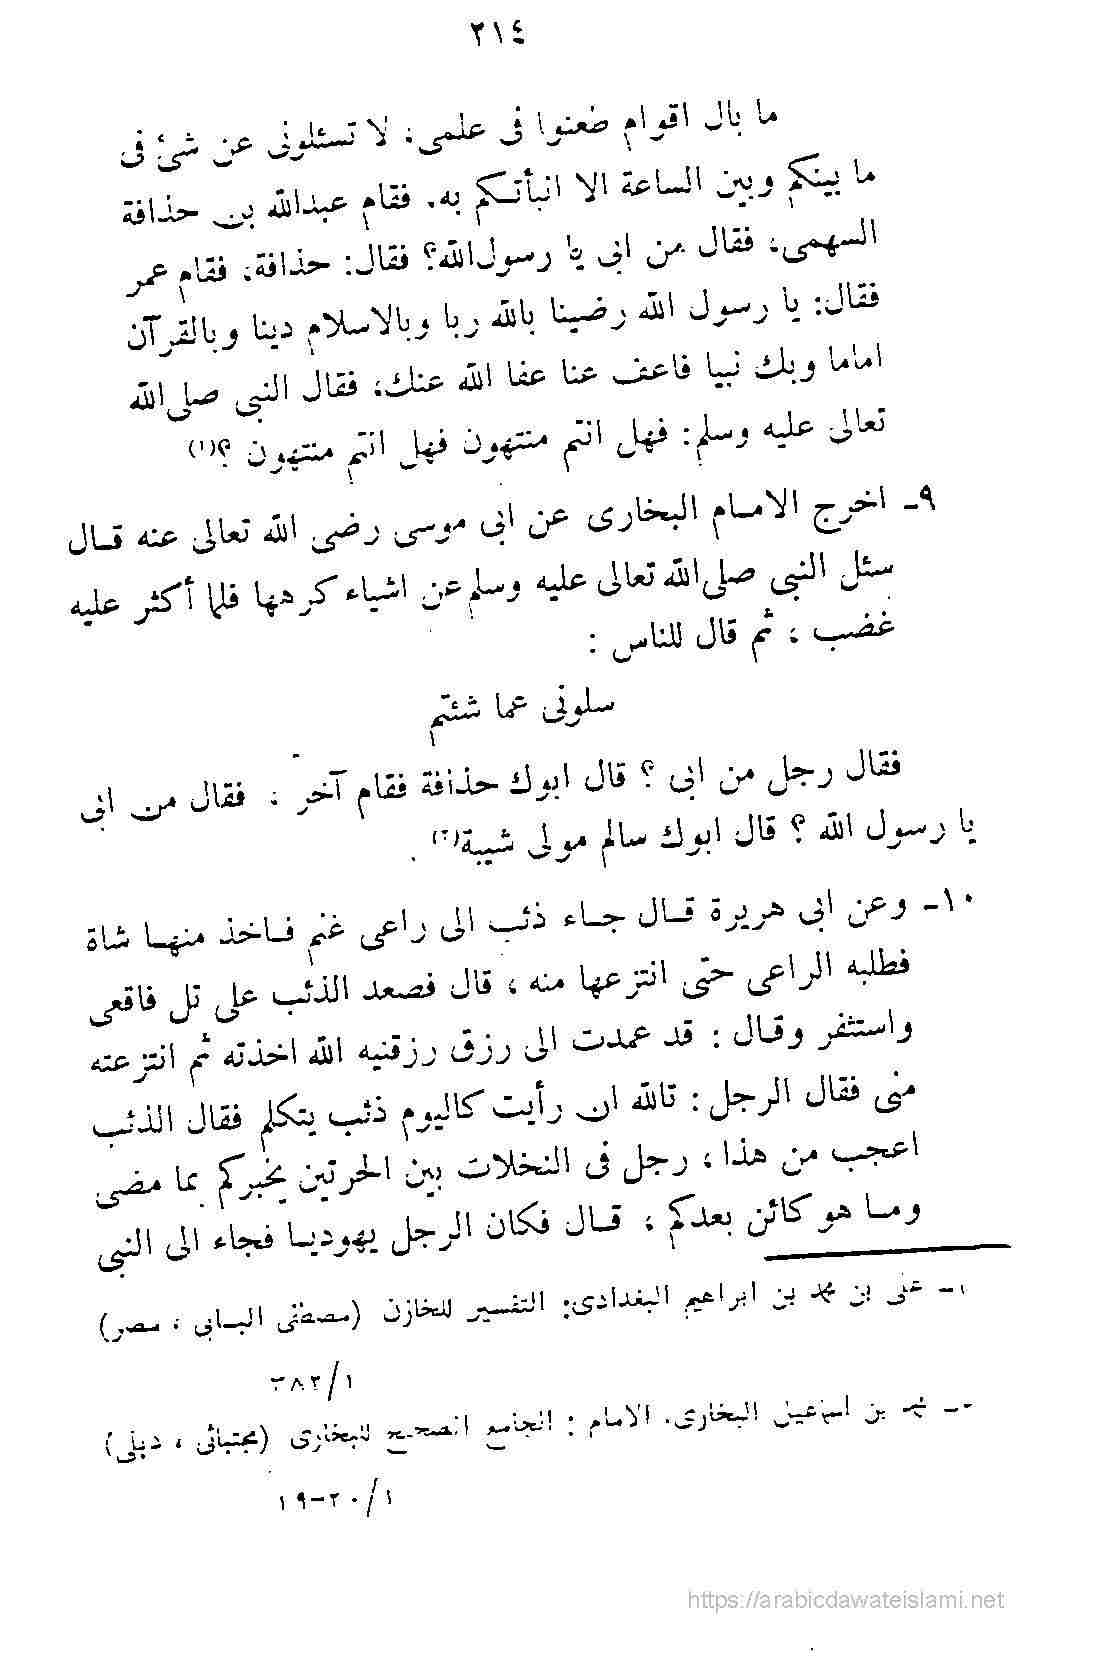 ٢١٤
ما بال اقوام طعنوا فى علمى، لا تسئلونى عن شئ فى
ما بينكم وبين الساعة الا انبأتكم به. فقام عبدالله بن حذافة
السهمى، فقال من ابى يا رسول‌الله؟ فقال: حذافة، فقام عمر
فقال: يا رسول الله رضينا بالله ربا وبالاسلام دينا وبالقرآن
اماما وبك نبيا فاعف عنا عفا الله عنك، فقال النبى صلى‌الله
تعالى عليه وسلم: فهل انتم منتهون فهل انتم منتهون ؟(١)
٩ـ اخرج الامام البخارى عن ابى موسى رضى الله تعالى عنه قال
سئل النبى صلى‌الله تعالى عليه وسلم عن اشياء كرهها فلما أكثر عليه
غضب ، ثم قال للناس :
سلونى عما شئتم
فقال رجل من ابى ؟ قال ابوك حذافة فقام آخر ، فقال من ابى
يا رسول الله ؟ قال ابوك سالم مولى شيبة(٢) .
١٠ـ وعن ابى هريرة قال جاء ذئب الى راعى غنم فاخذ منها شاة
فطلبه الراعى حتى انتزعها منه ، قال فصعد الذئب على تل فاقعى
واستثفر وقال : قد عمدت الى رزق رزقنيه الله اخذته ثم انتزعته
منى فقال الرجل : تالله ان رأيت كاليوم ذئب يتكلم فقال الذئب
اعجب من هذا ، رجل فى النخلات بين الحرتين يخبركم بما مضى
وما هو كائن بعدكم ، قال فكان الرجل يهوديا فجاء الى النبى
١ـ على بن محمد بن ابراهيم البغدادى: التفسير للخازن (مصطفى البابى ، مصر)
١/٣٨٢
٢ـ محمد بن اسماعيل البخارى، الامام : الجامع الصحيح للبخارى (مجتبائى ، دہلى)
١/٢٠-١٩
https://arabicdawateislami.net